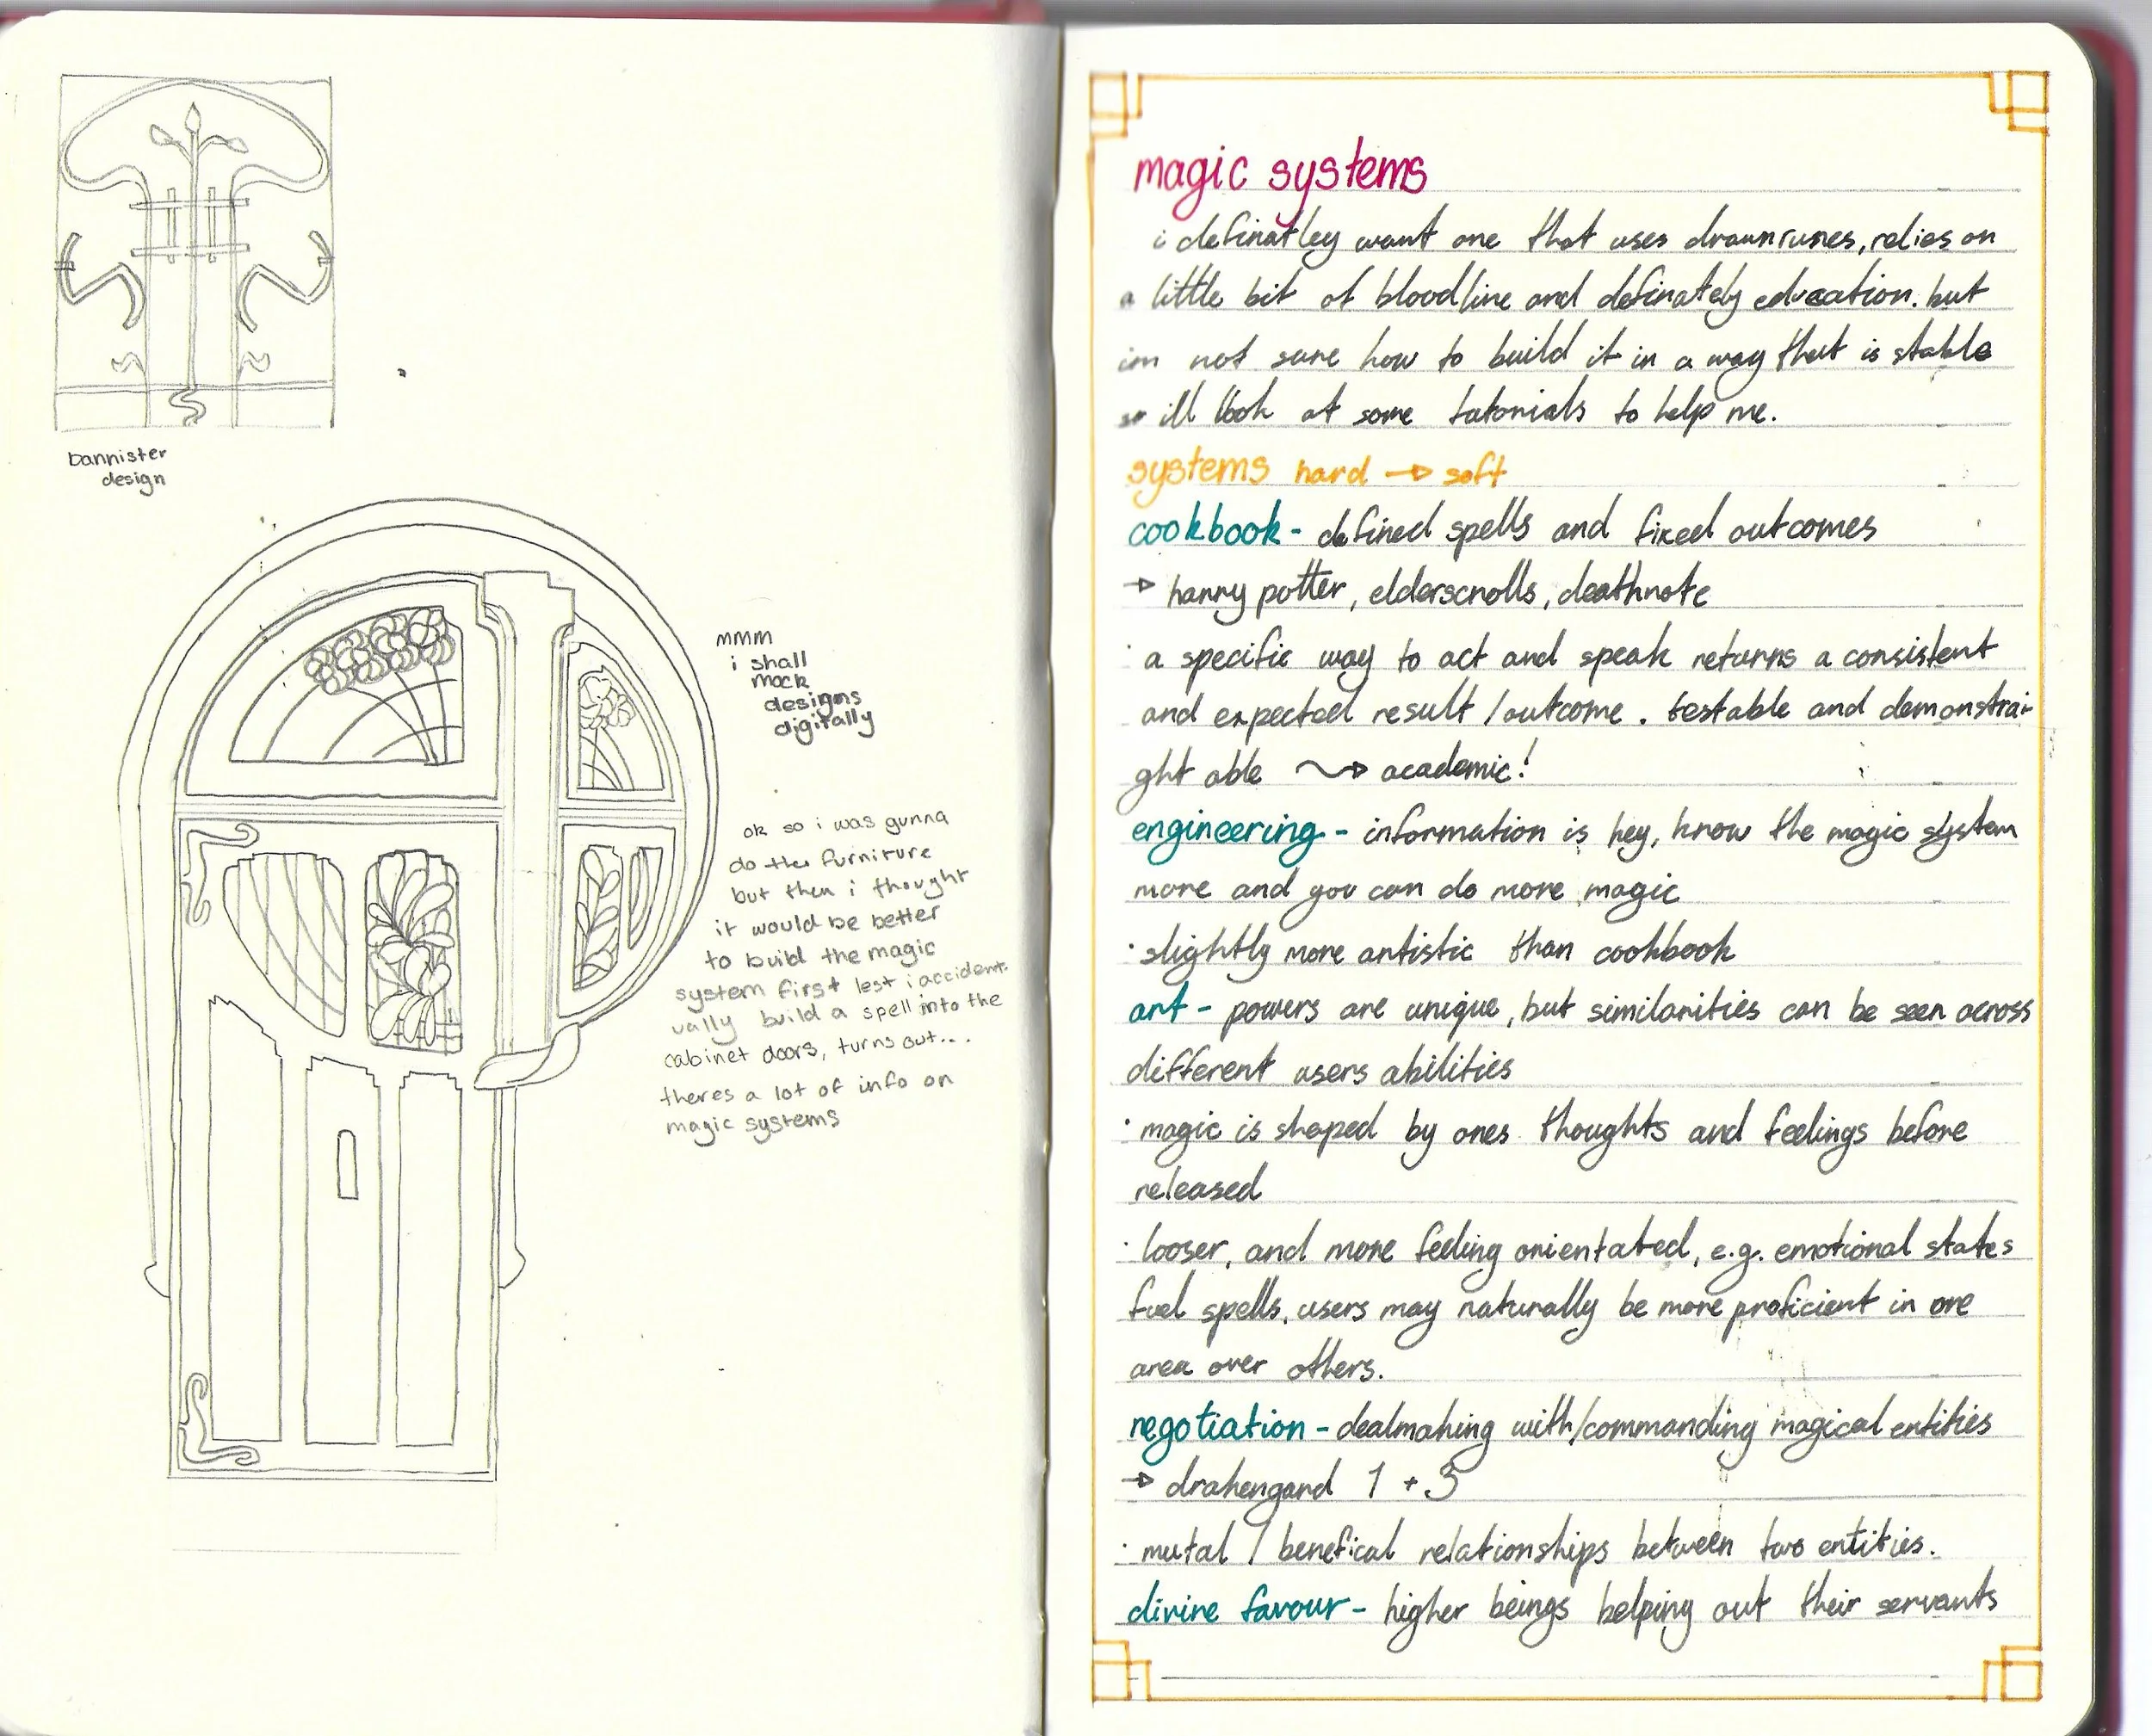 bannister
design
mmm
i shall
mock
designs
digitally
ok so i was gunna
do the furniture
but then i thought
it would be better
to build the magic
system first lest i accident-
ually build a spell into the
cabinet doors, turns out...
theres a lot of info on
magic systems
magic systems
i definatley want one that uses drawn runes, relies on
a little bit of bloodline and definately education. but
im not sure how to build it in a way that is stable
so ill look at some tutorials to help me.
systems hard → soft
cookbook - defined spells and fixed outcomes
→ harry potter, elderscrolls, deathnote
· a specific way to act and speak returns a consistent
and expected result / outcome. testable and demonstrai-
ght able → academic!
engineering - information is key, know the magic system
more and you can do more magic
· slightly more artistic than cookbook
art - powers are unique, but similarities can be seen across
different users abilities
· magic is shaped by ones thoughts and feelings before
released
· looser, and more feeling orientated, e.g. emotional states
fuel spells, users may naturally be more proficient in one
area over others.
negotiation - dealmaking with/commanding magical entities
→ drakengard 1 + 3
· mutal / benefical relationships between two entities.
divine favour - higher beings helping out their servants